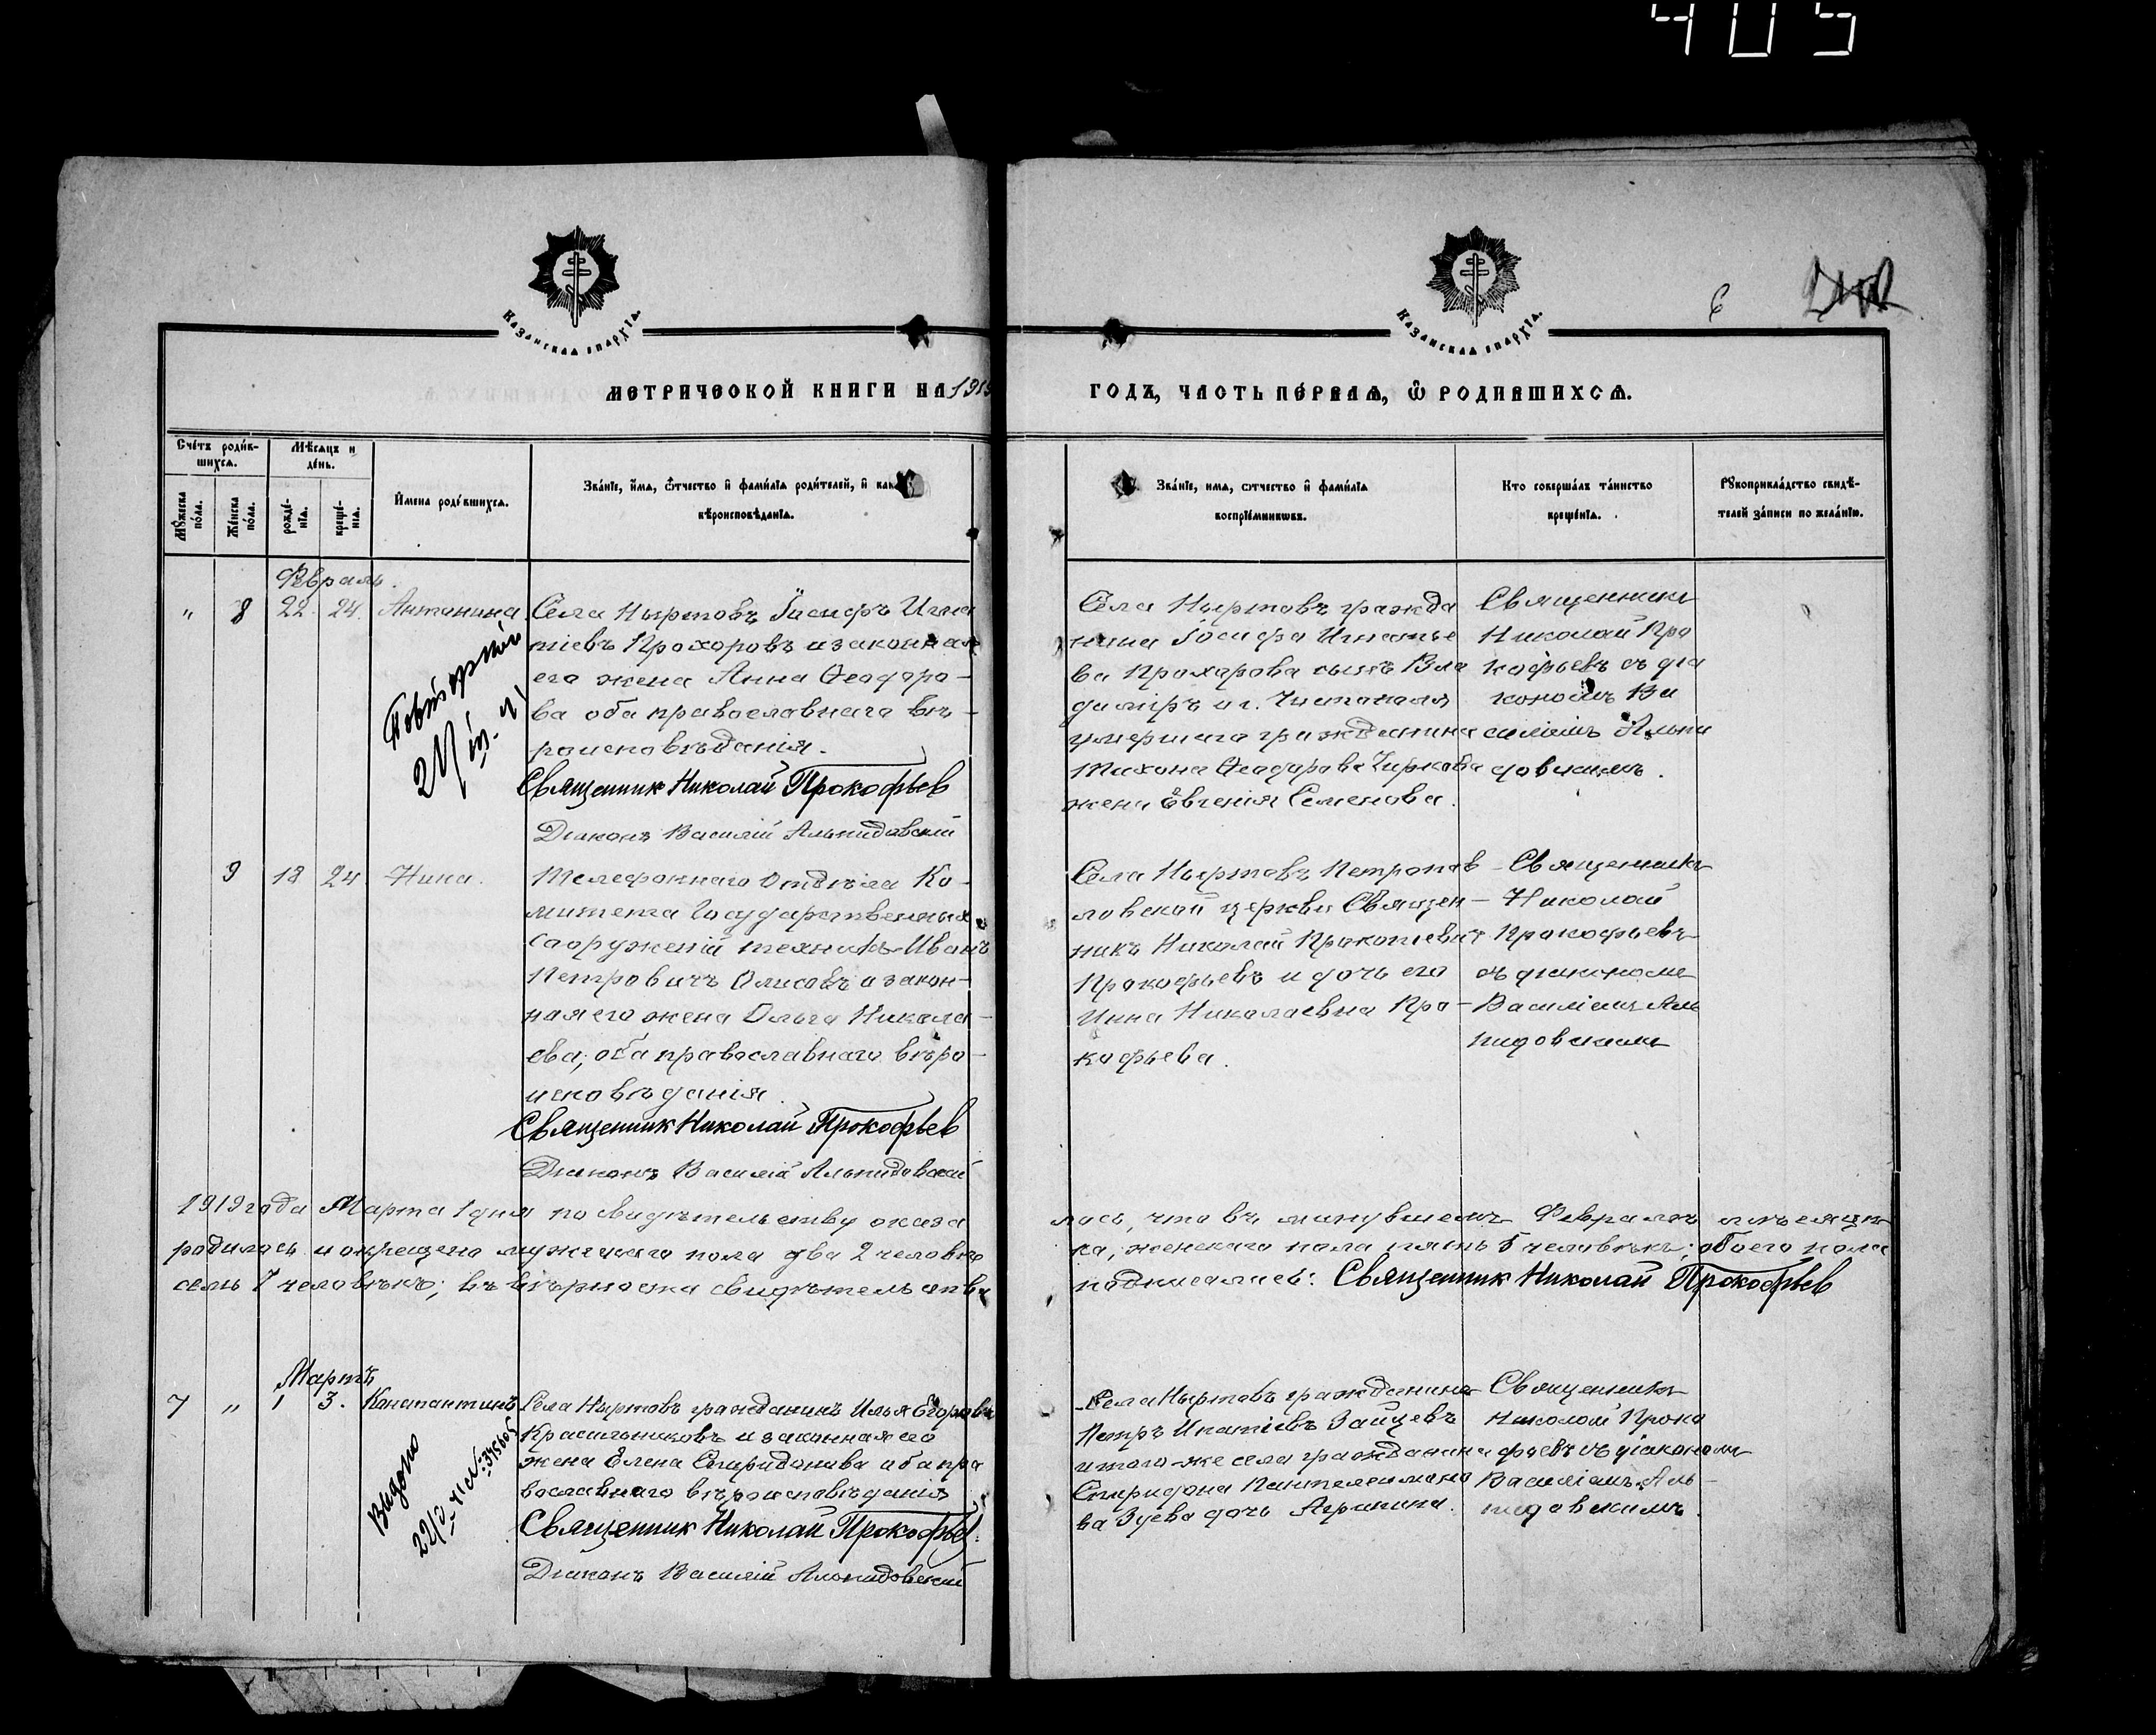 405
Казанская епархїа.
Казанская епархїа.
6
МЕТРИЧЕСКОЙ КНИГИ НА 1919
ГОДЪ, ЧАСТЬ ПЕ́РВАѦ, Ѽ РОДИВШИХСѦ.
Сче́тъ роди́в-
шихсѧ.
Мѣ́сѧцъ и
де́нь.
Мꙋ́жеска
по́ла.
Же́нска
по́ла.
рожде́-
нїѧ.
креще́-
нїѧ.
И҆мена роди́вшихсѧ.
Зва́нїе, и҆́мѧ, ѻ҆́тчество и҆ фами́лїѧ роди́телей, и҆ как
вѣроисповѣ́данїѧ.
Зва́нїе, имѧ, отчество и҆ фами́лїѧ
воспрїе́мниковъ.
Кто соверша́лъ та́инство
креще́нїѧ.
Рꙋкоприкла́дство свидѣ́-
телей за́писи по жела́нїю.
Февраль.
" 8 22. 24. Антонина
Села Ныртовъ Іосифъ Игна
тіевъ Прохоровъ и законная
его жена Анна Ѳеодоро-
ва оба православнаго вѣ-
роисповѣданія.
Священник Николай Прокофьев
Діаконъ Василій Альпидовскій
Повторный
Села Ныртовъ гражда
нина Іосифа Игнатье
ва Прохорова сынъ Вла
димiръ и г. Чистополя
умершаго гражданина
Тихона Ѳеодорова Чиркова
жена Евгенія Семенова.
Священникъ
Николай Про
кофьевъ съ діа
кономъ Ва
силіемъ Альпи
довскимъ.
9 18 24 Нина.
Телефоннаго Отдѣла Ко-
митета Государственныхъ
Сооруженій техникъ Иванъ
Петровичъ Олисовъ и закон-
ная его жена Ольга Никола-
ева, оба православнаго вѣро-
исповѣданія.
Священник Николай Прокофьев
Діаконъ Василій Альпидовскій
Села Ныртовъ Петропав
ловской церкви Священ-
никъ Николай Прокопіевичъ
Прокофьевъ и дочь его
Инна Николаевна Про-
кофьева.
Священникъ
Николай
Прокофьевъ
съ діакономъ
Василіемъ Аль
пидовскимъ
1919 года Марта 1 дня по свидѣтельству оказа
лось, что въ минувшемъ Февралѣ мѣсяцѣ
родилось и окрещено мужескаго пола два 2 человѣ
ка, женскаго пола пять 5 человѣкъ; обоего пола
семь 7 человѣкъ; въ вѣрности свидѣтельства
подписались: Священник Николай Прокофьев
Мартъ
7 " 1 3. Константинъ
Села Ныртовъ гражданинъ Илья Егоровъ
Красильниковъ и законная его
жена Елена Спиридонова оба пра
вославнаго вѣроисповѣданія
Священник Николай Прокофьев.
Діаконъ Василій Альпидовскій
Выдано
Села Ныртовъ гражданинъ
Петръ Игнатіевъ Зайцевъ
и того-же села гражданина
Спиридона Пантелеимоно
ва Зуева дочь Агрипина.
Священникъ
Николай Проко
фьевъ съ діакономъ
Василіемъ Аль-
пидовскимъ.